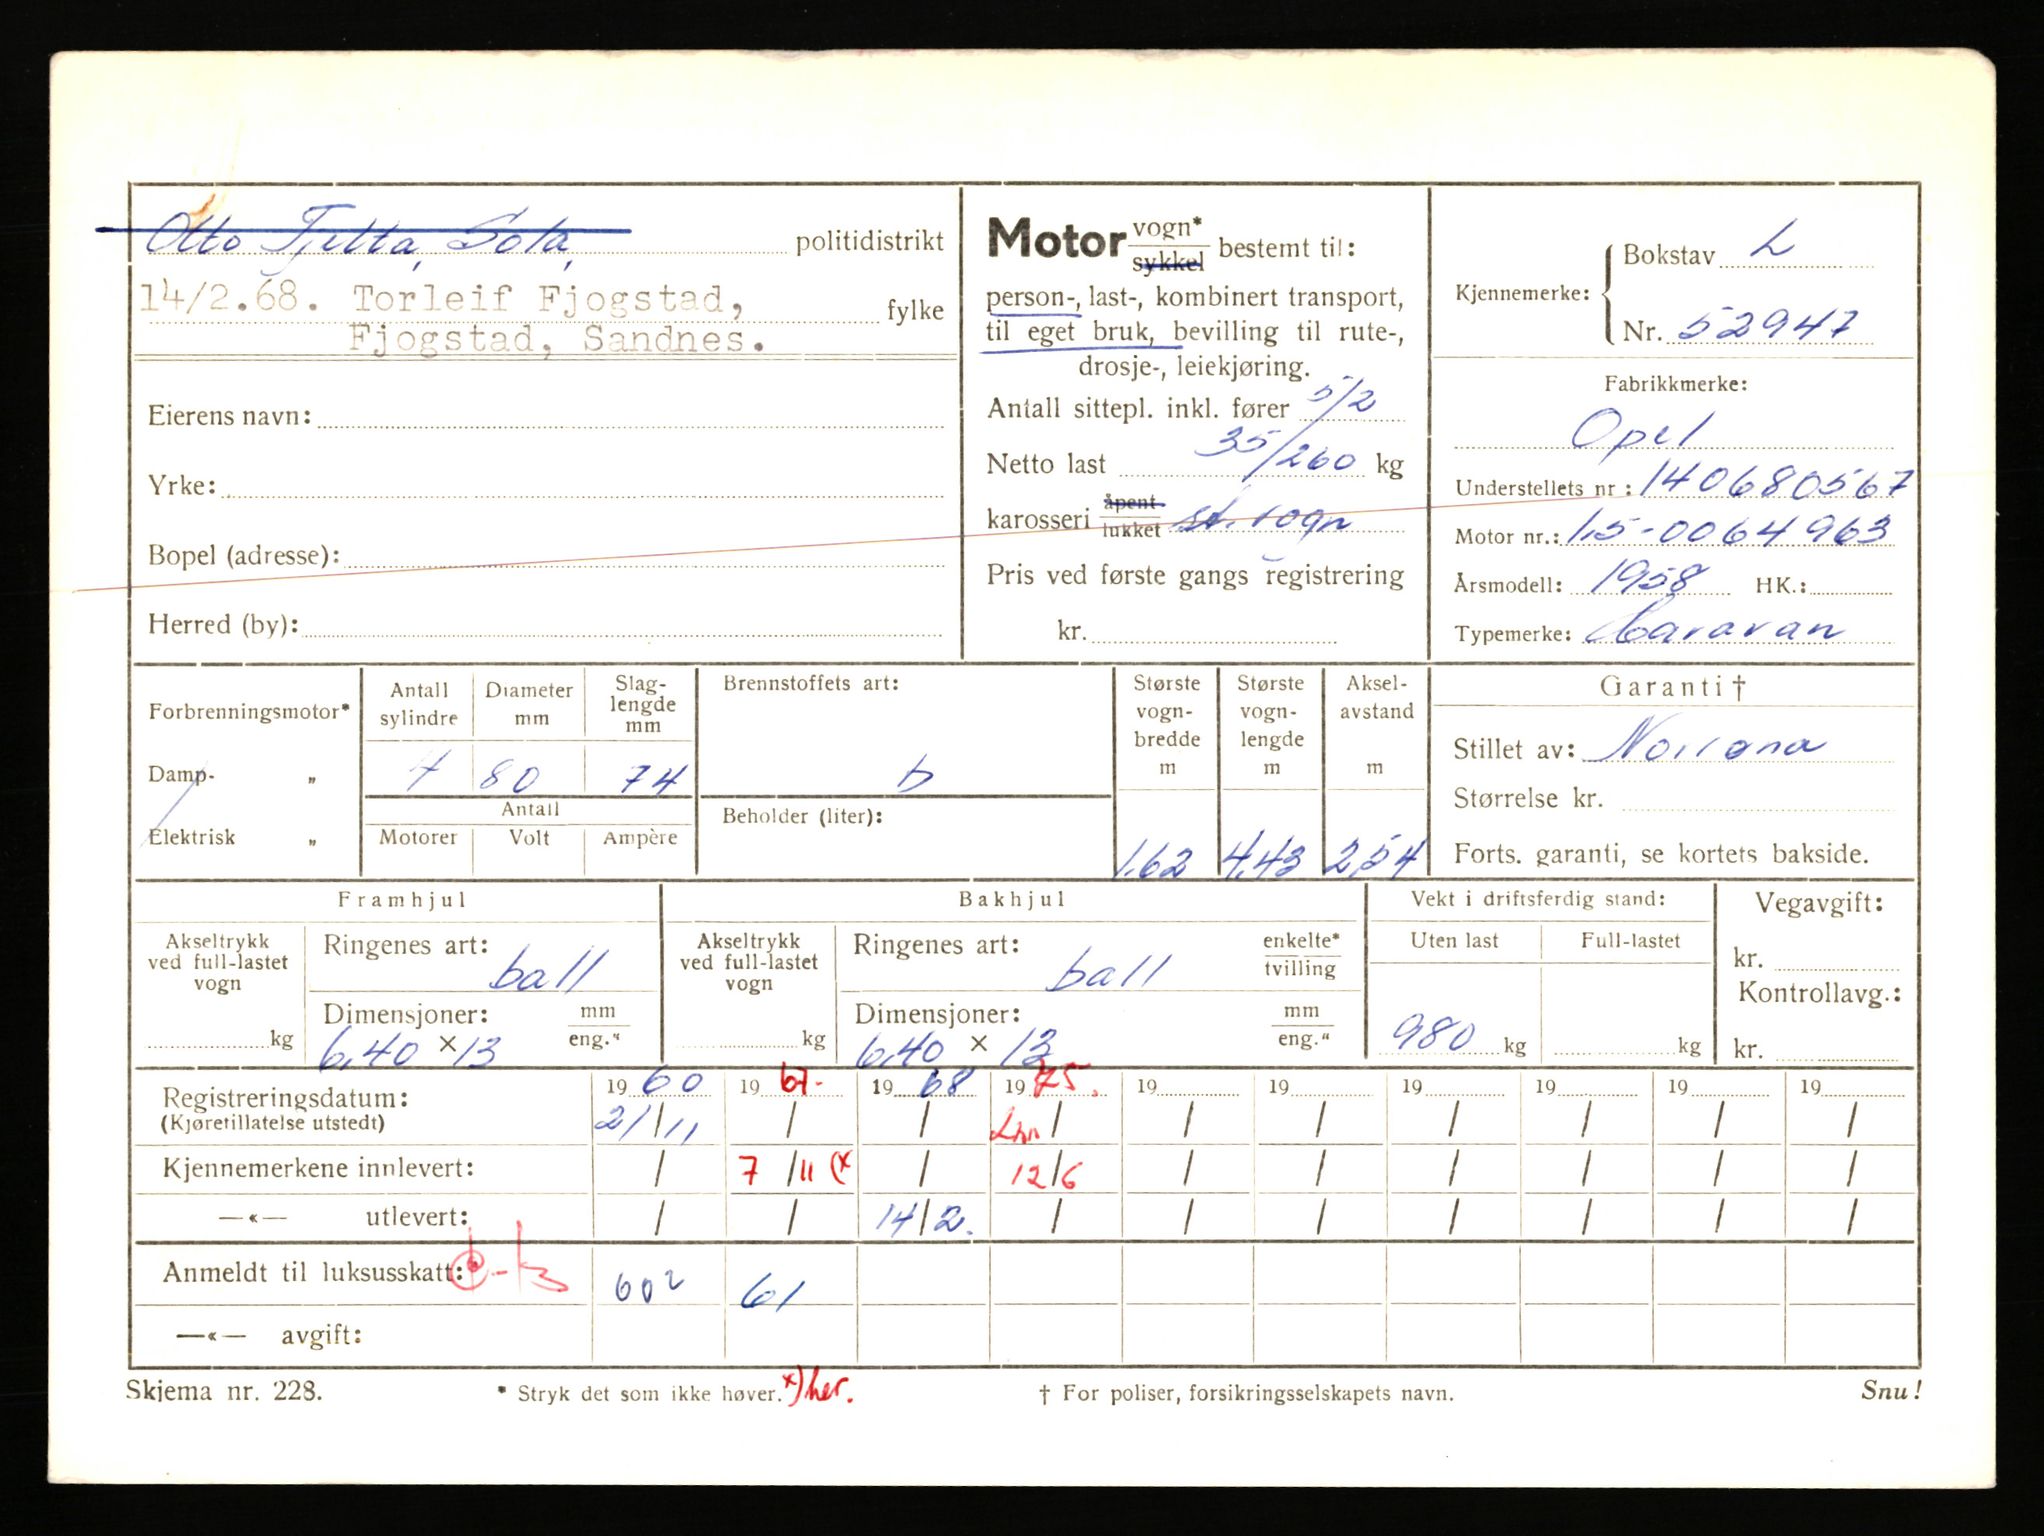 Otto Tjelta, Sola, politidistrikt
14/2.68. Torleif Fjogstad, fylke
Fjogstad, Sandnes.
Eierens navn:
Yrke:
Bopel (adresse):
Herred (by):
Motor vogn* sykkel bestemt til:
person-, last-, kombinert transport,
til eget bruk, bevilling til rute-,
drosje-, leiekjøring.
Antall sittepl. inkl. fører 5/2
Netto last 35/260 kg
karosseri åpent lukket st. vogn
Pris ved første gangs registrering
kr.
Kjennemerke: Bokstav L
Nr. 52947
Fabrikkmerke:
Opel
Understellets nr: 140680567
Motor nr.: 1,5-0064963
Årsmodell: 1958 HK.:
Typemerke: Caravan
Forbrenningsmotor*
Damp- "
Elektrisk "
Antall sylindre Diameter mm Slag-lengde mm
4 80 74
Antall
Motorer Volt Ampère
Brennstoffets art:
b
Beholder (liter):
Største vogn-bredde m Største vogn-lengde m Aksel-avstand m
1.62 4,43 2,54
Garanti †
Stillet av: Norrøna
Størrelse kr.
Forts. garanti, se kortets bakside.
Framhjul
Akseltrykk ved full-lastet vogn
kg
Ringenes art: ball
Dimensjoner: mm eng."
6,40 × 13
Bakhjul
Akseltrykk ved full-lastet vogn
kg
Ringenes art: ball enkelte* tvilling
Dimensjoner: mm eng."
6,40 × 13
Vekt i driftsferdig stand:
Uten last Full-lastet
980 kg kg
Vegavgift:
kr.
Kontrollavg.:
kr.
Registreringsdatum: 19 60 19 67. 19 68 19 75. 19 19 19 19 19 19
(Kjøretillatelse utstedt) 21/11 / / / / / / / / /
Kjennemerkene innlevert: / 7/11 (x / 12/6 / / / / / /
—«— utlevert: / / 14/2. / / / / / / /
Anmeldt til luksusskatt: 602 61
—«— avgift:
Skjema nr. 228. * Stryk det som ikke høver. x) her. † For poliser, forsikringsselskapets navn. Snu!